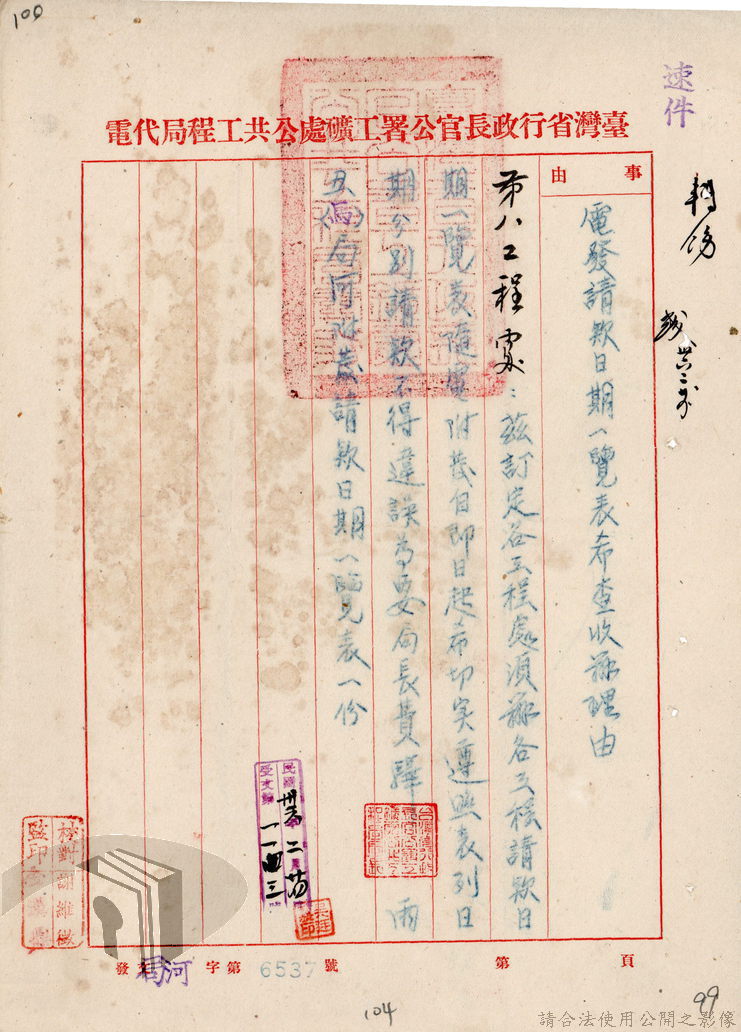 100
速件
臺灣省行政長官公署工礦處公共工程局代電
事由
電發請款日期一覽表希查收辦理由
第八工程處：茲訂定各工程處須辦各工程請款日
期一覽表隨電附發自即日起希切实遵照表列日
期分別請款不得違誤為要局長費驊
丑（）局河附發請款日期一覽表一份
民國
收文號
一一四三
校對謝維
監印
發文 河 字第6537號
第 頁
104
99
請合法使用公開之影像